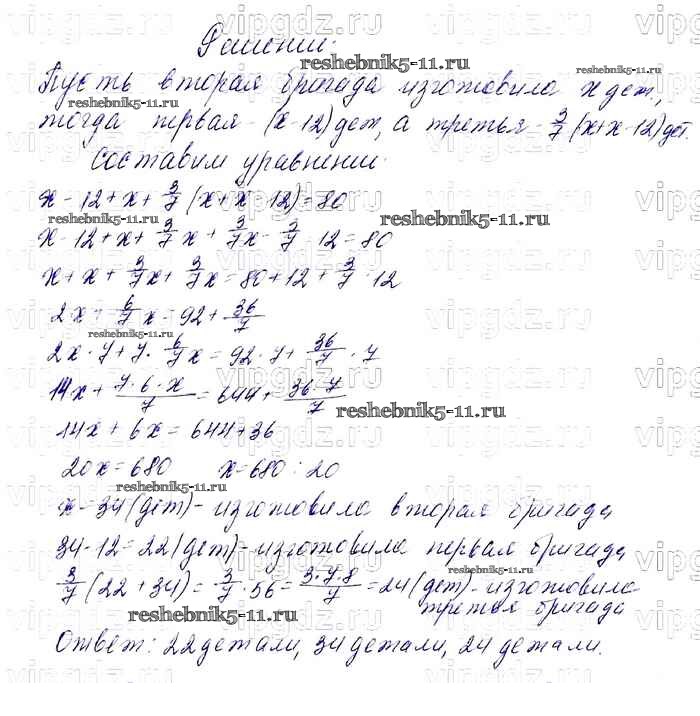 Решение:
Пусть вторая бригада изготовила x дет.,
тогда первая - (x-12) дет, а третья - 3/7 (x+x-12) дет.
Составим уравнение:
x - 12 + x + 3/7 (x+x-12) = 80
x - 12 + x + 3/7 x + 3/7 x - 3/7 · 12 = 80
x + x + 3/7 x + 3/7 x = 80 + 12 + 3/7 · 12
2x + 6/7 x = 92 + 36/7
2x · 7 + 7 · 6/7 x = 92 · 7 + 36/7 · 7
14x + 7·6·x/7 = 644 + 36·7/7
14x + 6x = 644 + 36
20x = 680 x = 680 : 20
x = 34 (дет) - изготовила вторая бригада
34 - 12 = 22 (дет) - изготовила первая бригада
3/7 (22 + 34) = 3/7 · 56 = 3·7·8/7 = 24 (дет) - изготовила
третья бригада
Ответ: 22 детали, 34 детали, 24 детали.
vipgdz.ru
reshebnik5-11.ru